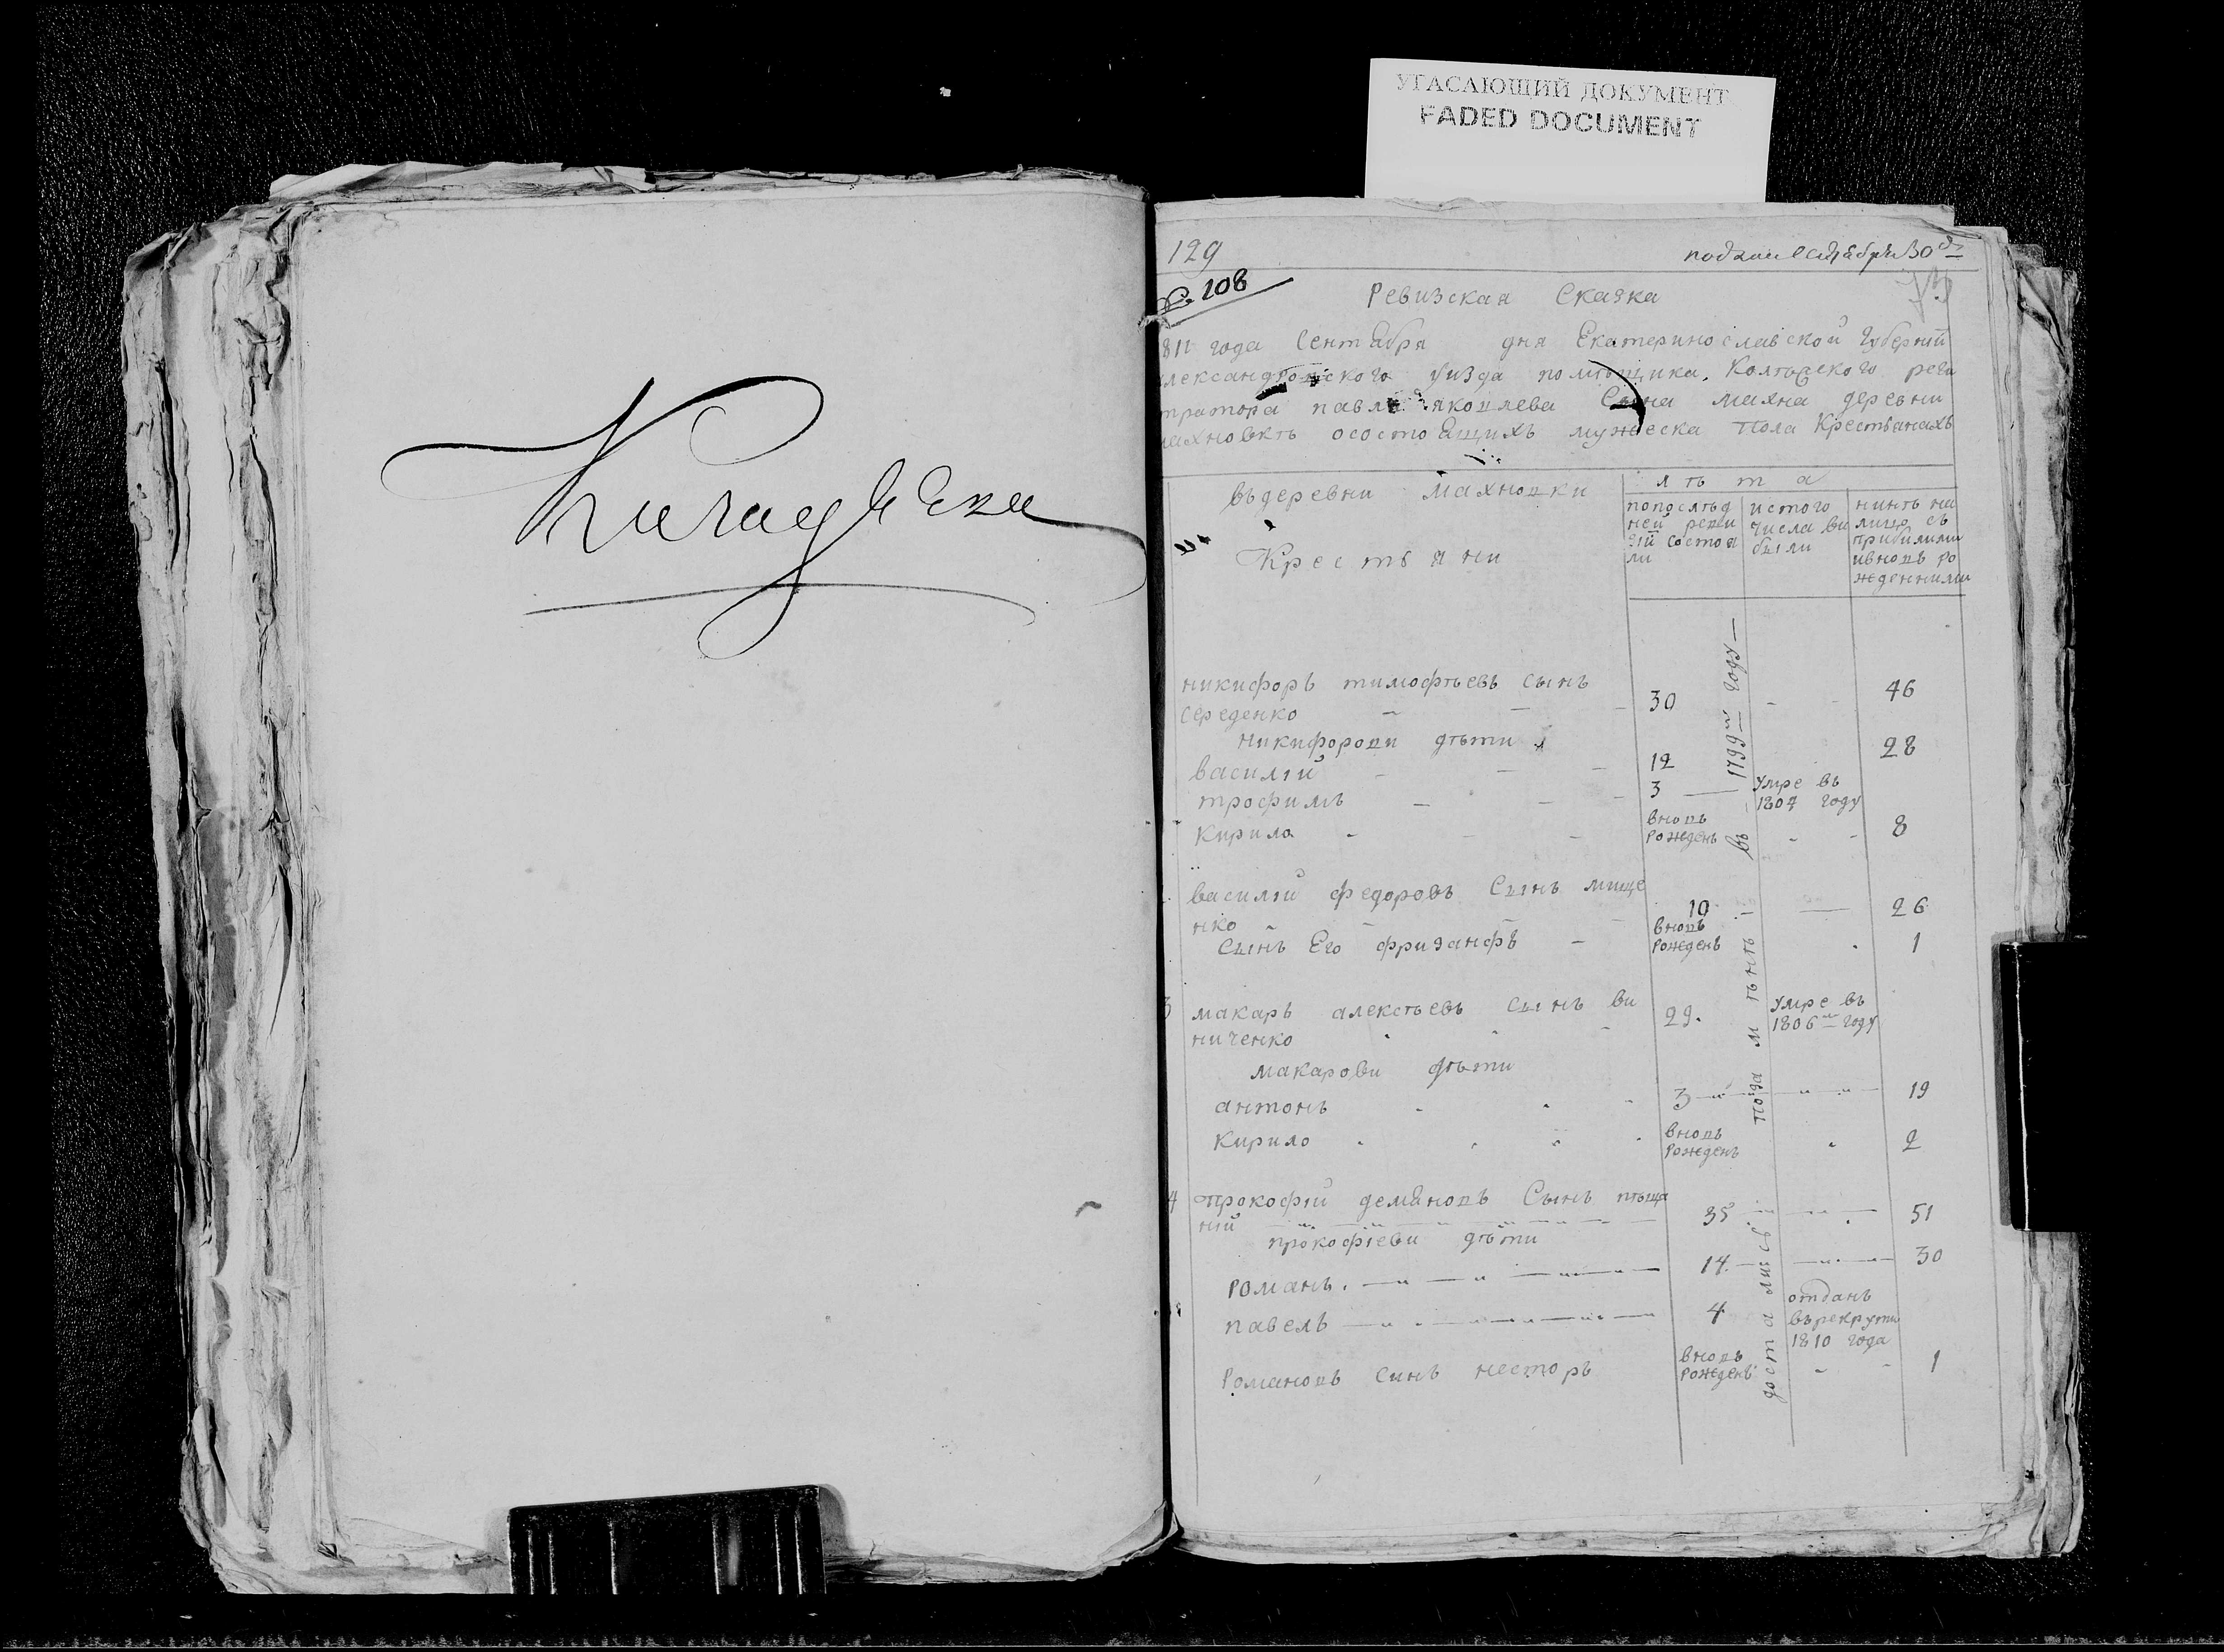 УГАСАЮЩИЙ ДОКУМЕНТ
FADED DOCUMENT
129
подана сентября 30го
№ 108
Ревизская Сказка
811 года Сентября дня Екатеринославской Губернїй
лександровского уизда помѣщика Колѣжского реги
тратора павла яковлева Сына махна деревни
ахновкѣ осостоящихъ мужеска пола Крестьянахъ
въдеревни Махновки
Крестьяни
лѣта
попослѣд
ней реви
зїй состоя
ли
истого
числа ви
были
нинѣ на
лицо съ
прибилими
ивновь ро
жденними
никифоръ тимофѣевъ сынъ
середенко 30 46
никифорови дѣти
василїй 12 28
трофимъ 3 умре въ
1807 году
Кирило вновь
рожденъ 8
василїй федоровъ Сынъ мище
нко 10 26
Сынъ Его фризанфъ вновь
рожденъ 1
3 макаръ алексѣевъ сынъ ви
ниченко 29. умре въ
1806м году
макарови дѣти
антонъ 3 19
Кирило вновь
рожденъ 2
4 прокофїй демяновъ Сынъ пѣща
нїй 35 51
прокофїеви дѣти
романъ. 14 30
павелъ 4 отданъ
върекрути
1810 года
Романовъ синъ несторъ вновь
рожденъ 1
въ 1799м году
поза мѣнѣ
досталисъ